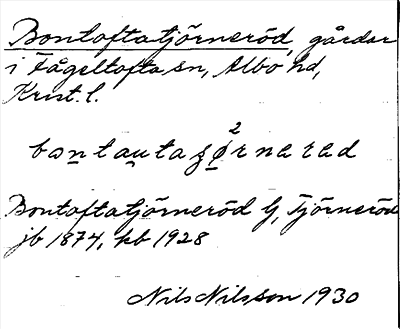 Bontoftatjörneröd, gårdar
i Fågeltofta sn, Albo hd,
Krist. l.
Bontoftatjörneröd
jb 1874, kb 1928
Nils Nilsson 1930